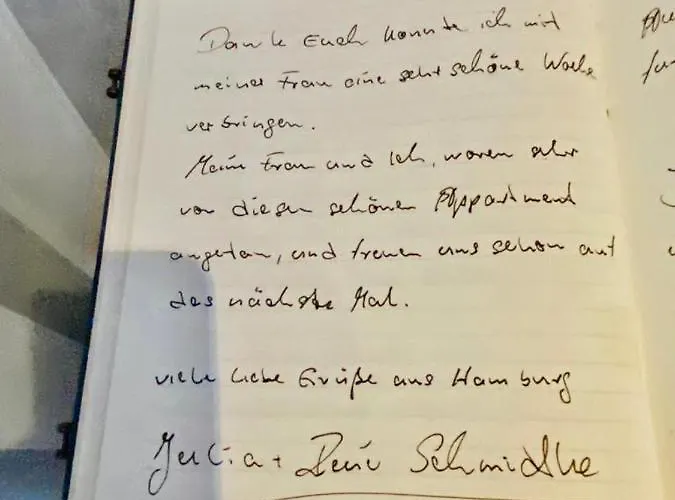 Dank Euch konnte ich mit
meiner Frau eine sehr schöne Woche
verbringen.
Meine Frau und ich, waren sehr
von diesen schönen Appartment
angetan, und freuen uns schon auf
das nächste Mal.
viele liebe Grüße aus Hamburg
Julia + René Schmidtke